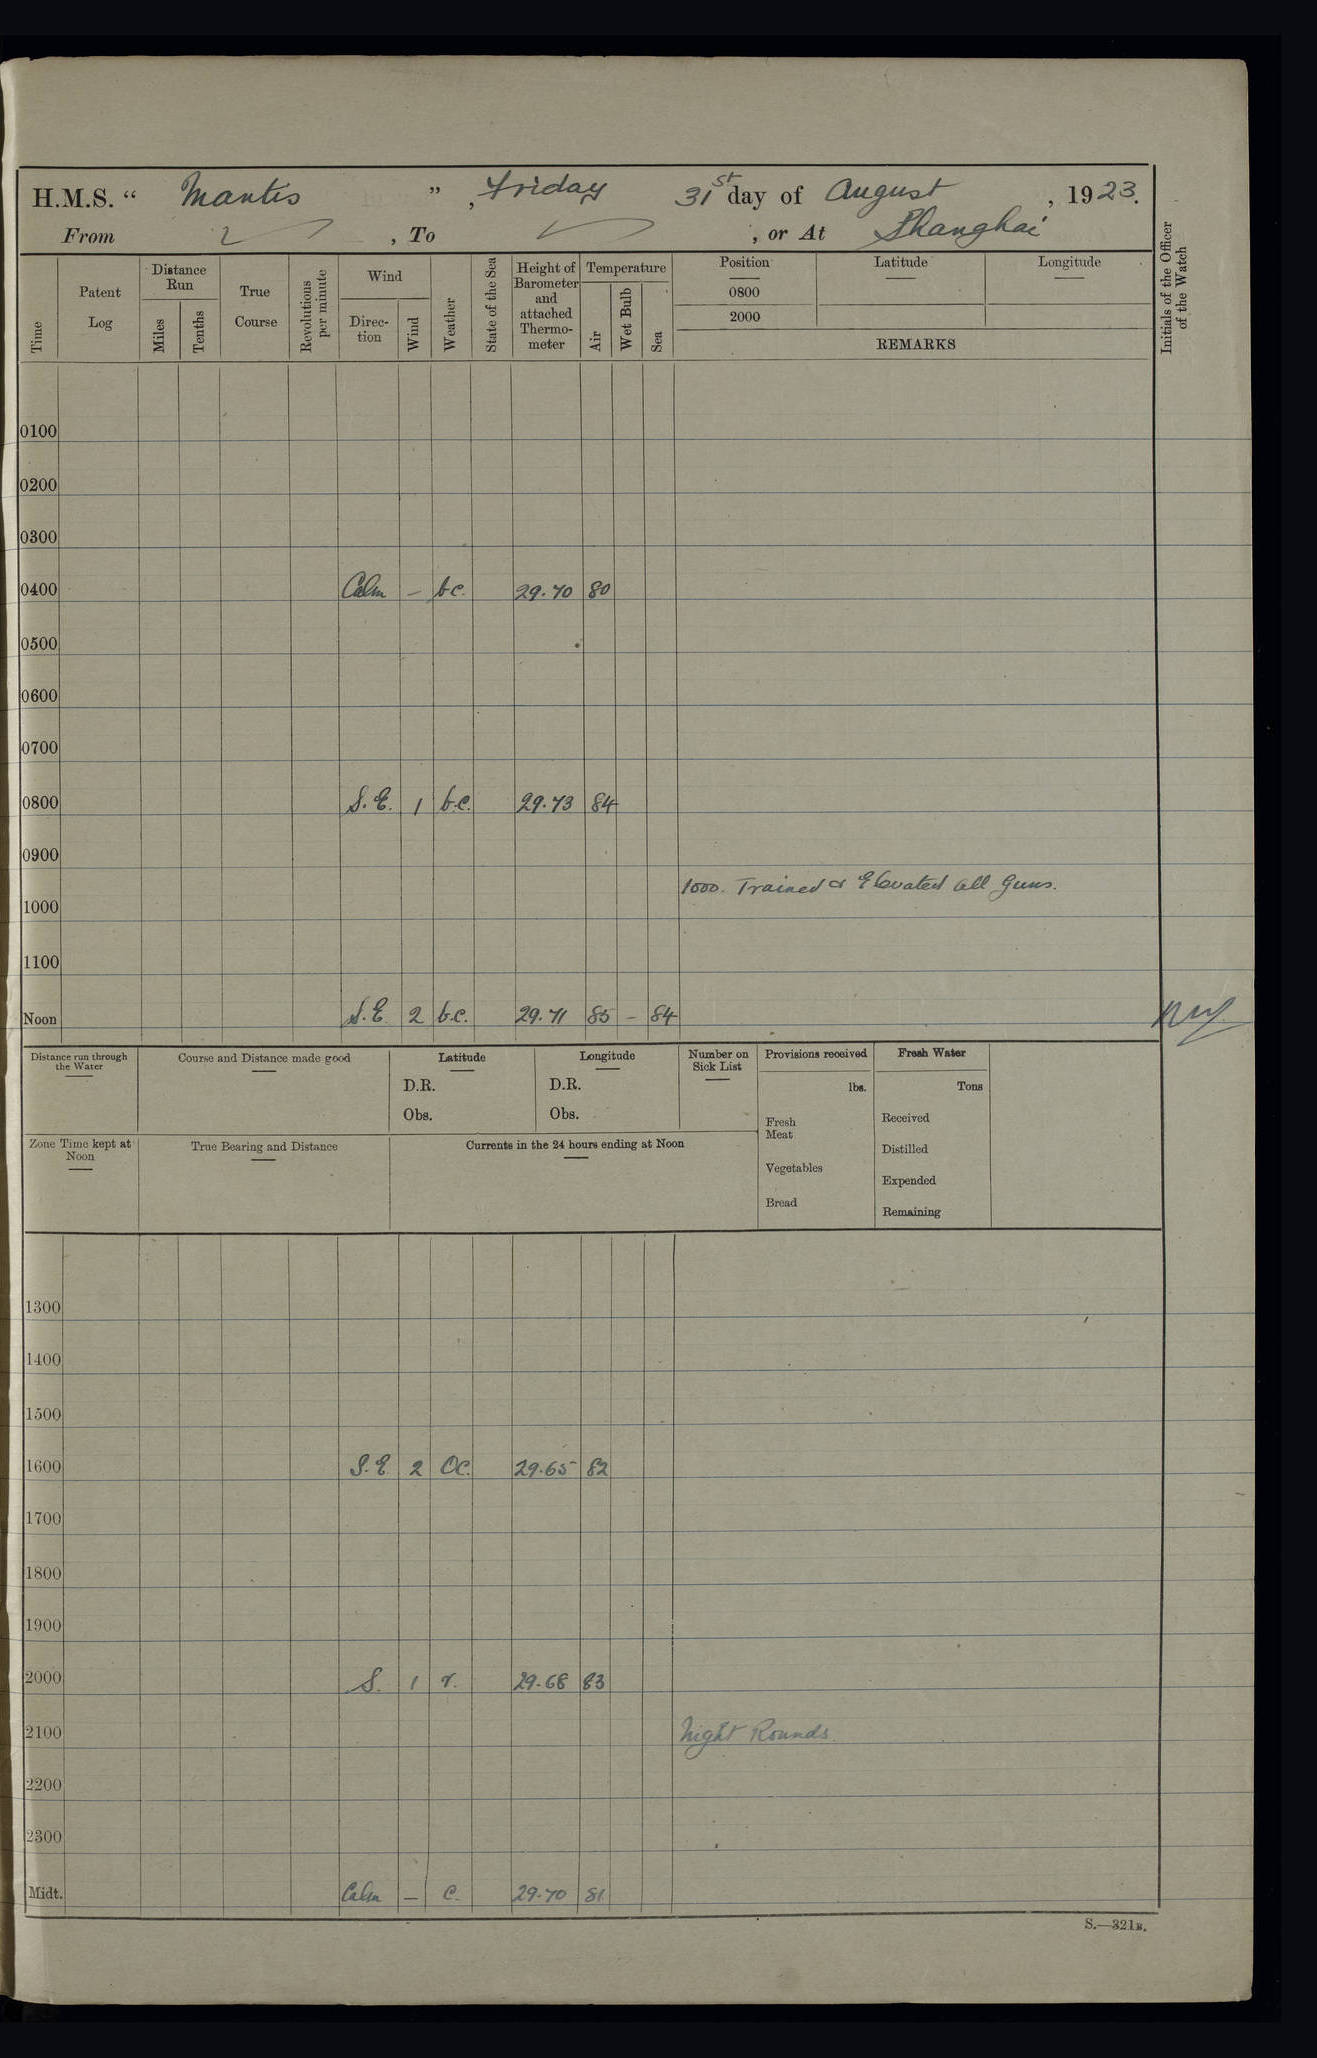 H.M.S. “ Mantis ” , Friday 31st day of August , 1923.
From , To , or At Shanghai
Time
Patent Log
Distance Run
Miles
Tenths
True Course
Revolutions per minute
Wind
Direc- tion
Wind
Weather
State of the Sea
Height of Barometer and attached Thermo- meter
Temperature
Air
Wet Bulb
Sea
Position Latitude Longitude
0800
2000
REMARKS
Initials of the Officer of the Watch
0100
0200
0300
0400 Calm – bc. 29.70 80
0500
0600
0700
0800 S.E. 1 b.c. 29.73 84
0900
1000. Trained & Elevated all Guns.
1000
1100
Noon S.E. 2 b.c. 29.71 85 – 84
Distance run through the Water
Course and Distance made good
Latitude
D.R.
Obs.
Longitude
D.R.
Obs.
Number on Sick List
Provisions received
lbs.
Fresh Meat
Vegetables
Bread
Fresh Water
Tons
Received
Distilled
Expended
Remaining
Zone Time kept at Noon
True Bearing and Distance
Currents in the 24 hours ending at Noon
1300
1400
1500
1600 S.E. 2 Oc. 29.65 82
1700
1800
1900
2000 S. 1 r. 29.68 83
2100 Night Rounds
2200
2300
Midt. Calm – c. 29.70 81
S.—321B.